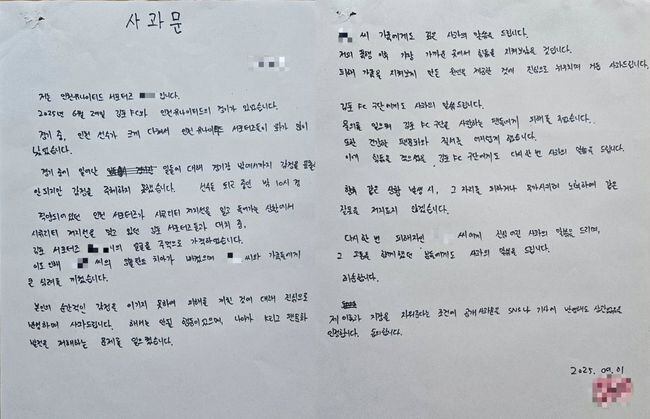 사과문
저는 인천유나이티드 서포터즈 입니다.
2025년 6월 29일 김포 FC와 인천유나이티드의 경기가 있었습니다.
경기 중, 인천 선수가 크게 다쳐서 인천 유나이티드 서포터즈들이 화가 많이
났었습니다.
경기 중에 일어난 일들에 대해 경기장 밖에서까지 감정을 표출하면
안 되지만 감정을 주체하지 못했습니다. 선수들 퇴근 중인 밤 10시 경
인천 서포터즈가 시큐리티 저지선을 밀고 들어가는 상황에서
시큐리티 저지선을 맡고 있던 김포 서포터즈들과 대치 중,
김포 서포터즈 님의 얼굴을 주먹으로 가격하였습니다.
이로 인해 씨의 치아가 씨와 가족들에게
큰 상처를 끼쳤습니다.
본인의 순간적인 감정을 이기지 못하여 피해를 끼친 것에 대해 진심으로
반성하며 사과드립니다. 해서는 안될 행동이었으며, 나아가 K리그 팬문화
발전을 저해하는 문제를 일으켰습니다.
씨 가족에게도 깊은 사과의 말씀을 드립니다.
저의 폭행 이후 가장 가까운 곳에서 힘듦을 지켜보셨을 것입니다.
피해 가족을 지켜보게 만든 원인을 제공한 것에 진심으로 뉘우치며 거듭 사과드립니다.
김포 FC 구단에게도 사과의 말씀드립니다.
물의를 일으켜 김포 FC 구단을 사랑하는 팬들에게 피해를 주었습니다.
또한 건강한 팬문화와 질서를 어지럽게 했습니다.
이에 힘듦을 겪으셨을 김포 FC 구단에게도 다시 한 번 사과의 말씀을 드립니다.
향후 같은 상황 발생 시, 그 자리를 피하거나 노력하며 같은
잘못을 저지르지 않겠습니다.
다시 한 번 피해자인 씨에게 진심 어린 사과의 말씀을 드리며,
그 고통을 함께 했던 분들에게도 사과의 말씀을 드립니다.
죄송합니다.
제 이름과 지장을 지워준다는 조건에 공개사과문을 SNS나 기사에 반영해도 상관없음을
인정합니다. 동의합니다.
2025. 09. 01